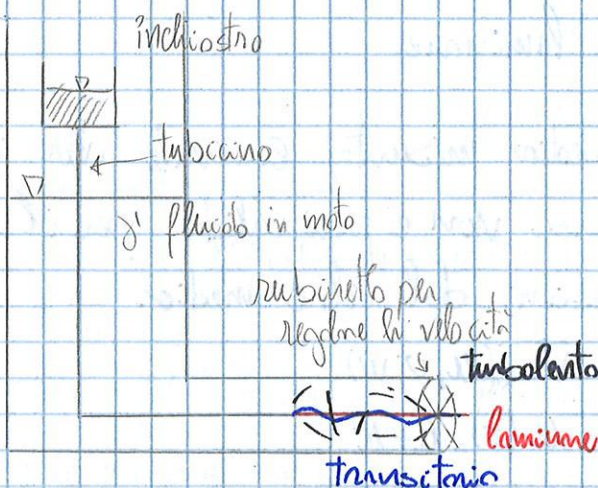 inchiostro
tubicino
γ' fluido in moto
rubinetto per
regolare la velocità
turbolento
laminare
transitorio